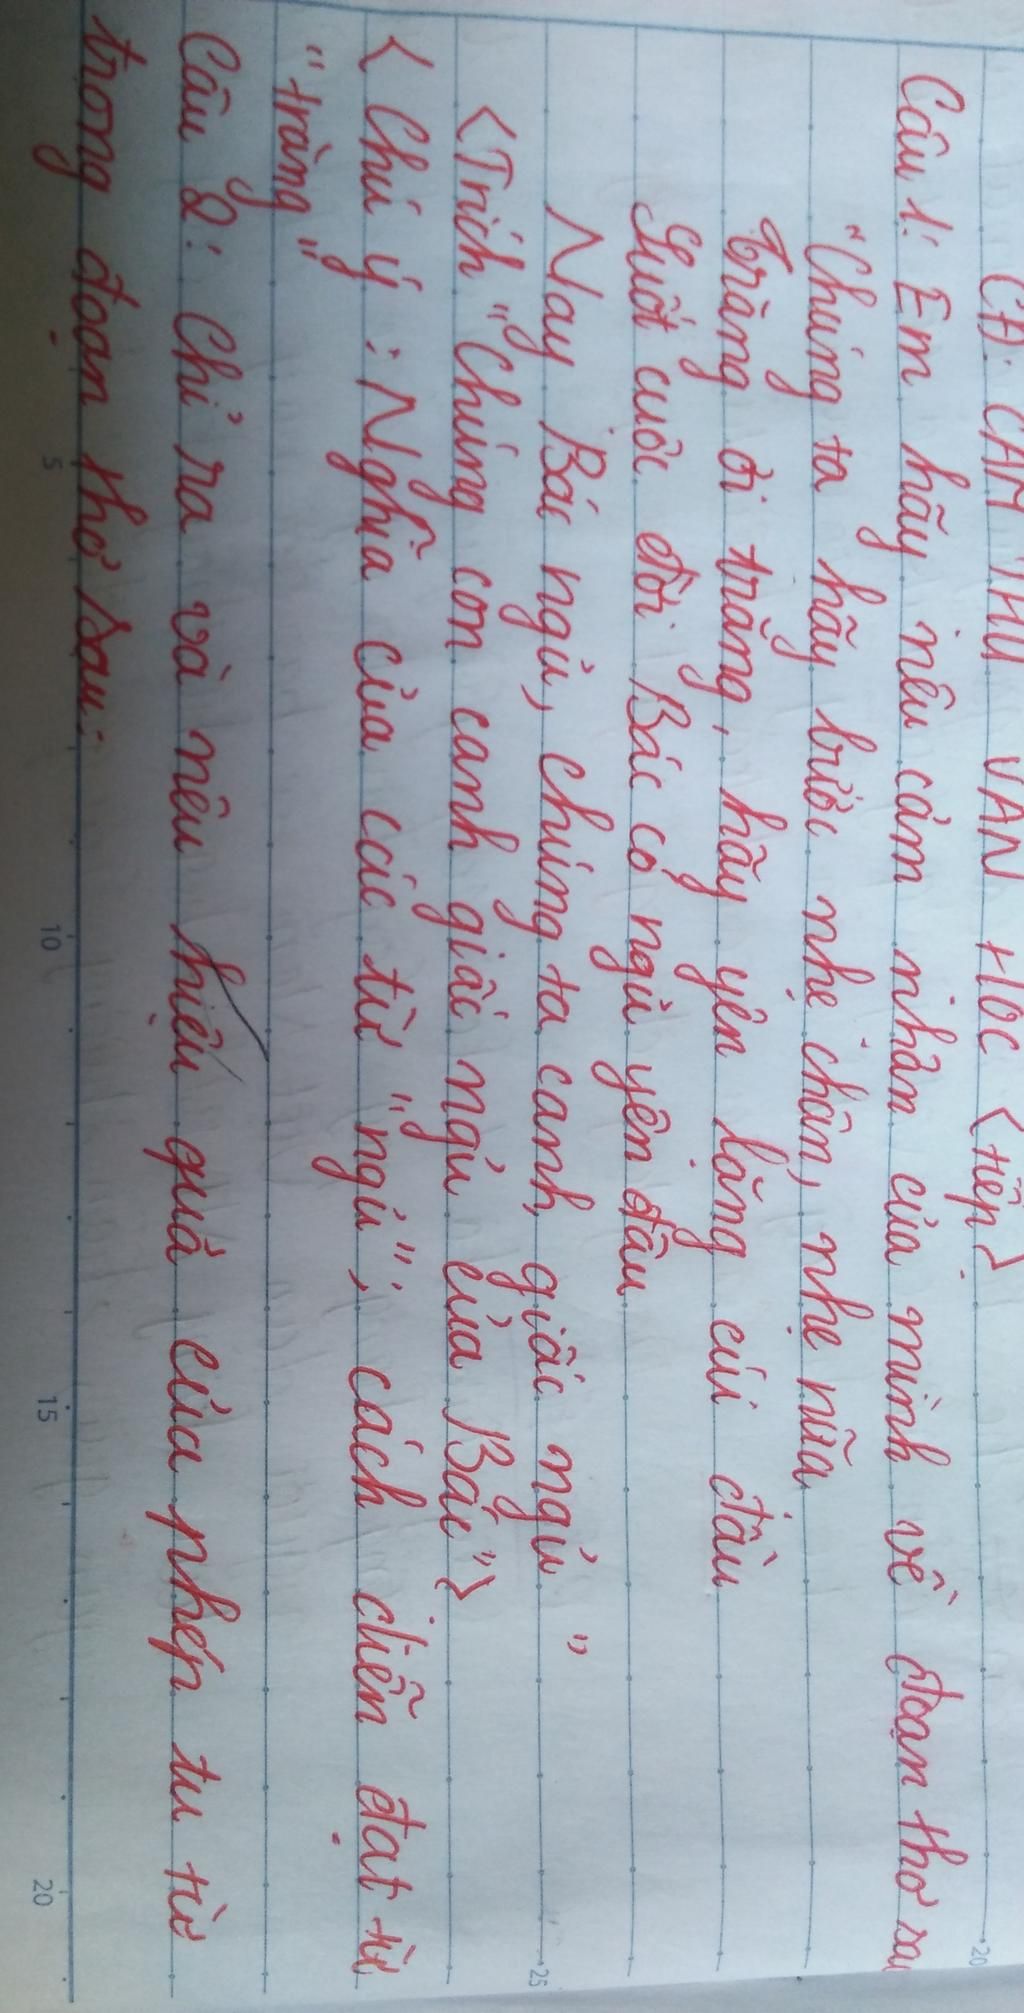 CĐ: CẢM THỤ VĂN HỌC <tiếp>
Câu 1: Em hãy nêu cảm nhận của mình về đoạn thơ sau
"Chúng ta hãy bước nhẹ chân, nhẹ nữa
Trăng ơi trăng, hãy yên lặng cúi đầu
Suốt cuộc đời Bác có ngủ yên đâu
Nay Bác ngủ, chúng ta canh giấc ngủ"
<Trích "Chúng con canh giấc ngủ của Bác">
< Chú ý: Nghĩa của các từ "ngủ"; cách diễn đạt từ
"trăng"
Câu 2: Chỉ ra và nêu hiệu quả của phép tu từ
trong đoạn thơ sau:
5
10
15
20
25
20